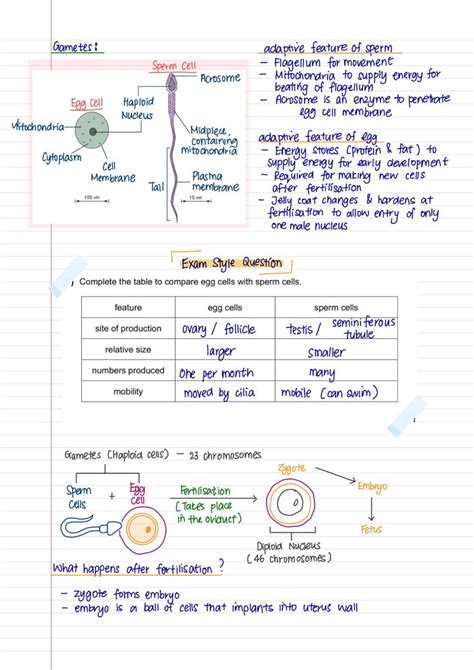 Gametes:
Sperm Cell
Acrosome
Egg Cell
Haploid
Nucleus
Mitochondria
Cytoplasm
Cell
Membrane
Midpiece
containing
mitochondria
Tail
Plasma
membrane
adaptive feature of sperm
- Flagellum for movement
- Mitochondria to supply energy for
beating of flagellum
- Acrosome is an enzyme to penetrate
egg cell membrane
adaptive feature of egg
- Energy stores (protein & fat) to
supply energy for early development
- Required for making new cells
after fertilisation
- Jelly coat changes & hardens at
fertilisation to allow entry of only
one male nucleus
Exam Style Question
Complete the table to compare egg cells with sperm cells.
feature egg cells sperm cells
site of production ovary / follicle testis / seminiferous tubule
relative size larger smaller
numbers produced one per month many
mobility moved by cilia mobile (can swim)
Gametes (Haploid cells) - 23 chromosomes
Sperm
Cells
+
Egg
Cell
Fertilisation
(Takes place
in the oviduct)
Zygote
Embryo
Fetus
Diploid Nucleus
(46 chromosomes)
What happens after fertilisation?
- zygote forms embryo
- embryo is a ball of cells that implants into uterus wall